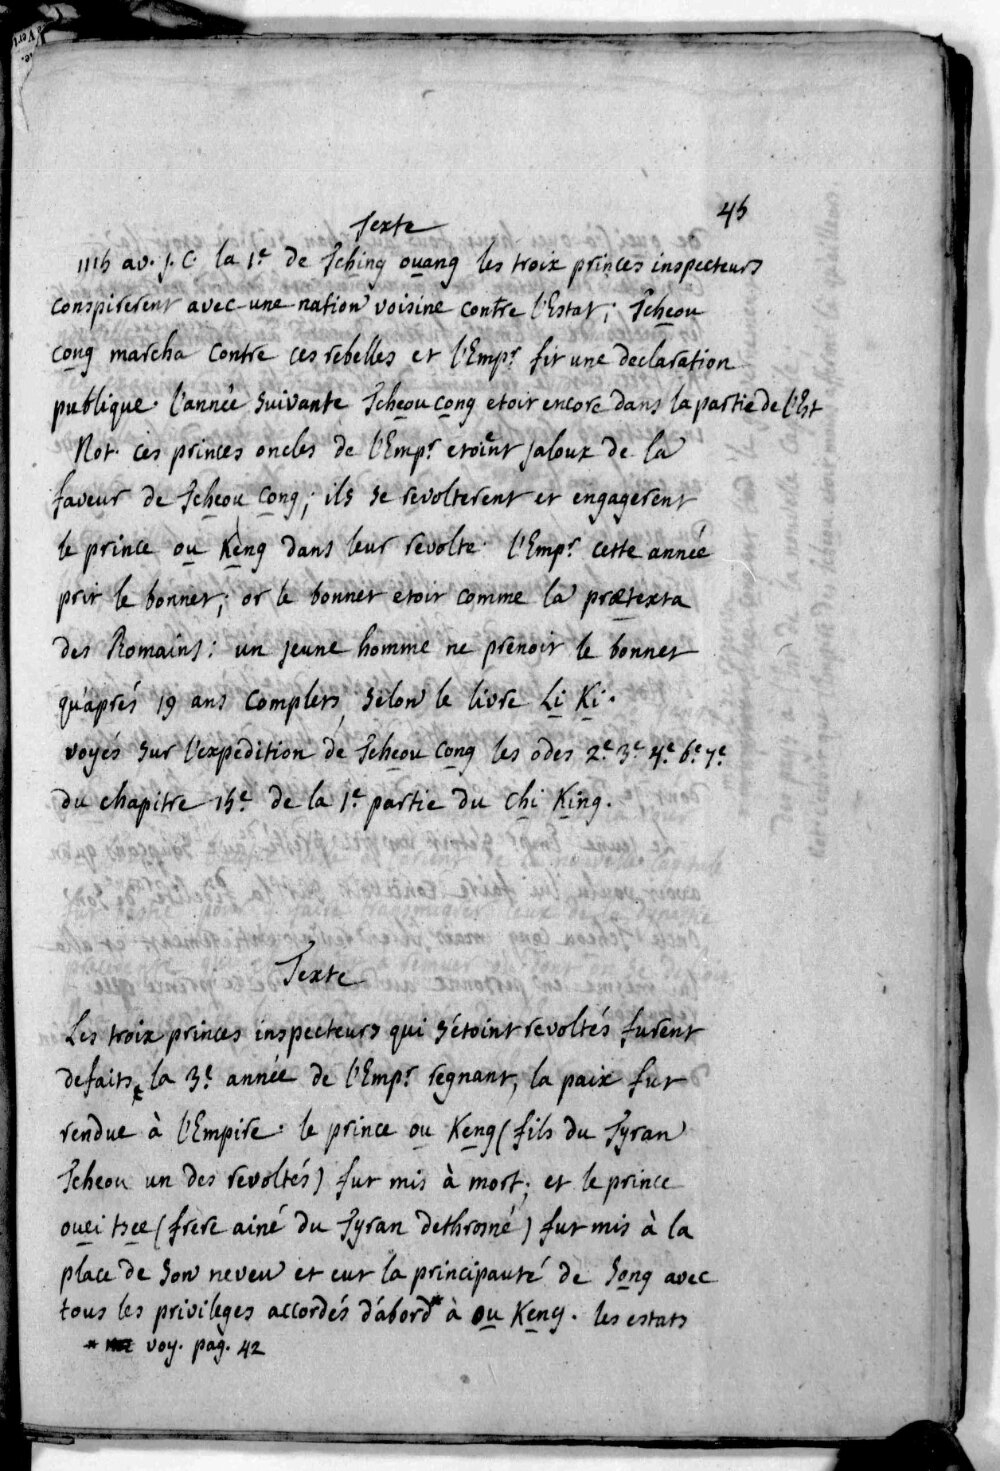 45
Texte
1115 av. J. C. la 1e de Tching ouang les troix princes inspecteurs
conspirerent avec une nation voisine contre l'Estat; Tcheou
cong marcha contre ces rebelles et l'Empr fit une declaration
publique. l'année suivante Tcheou cong etoit encore dans la partie de l'Est
Not. ces princes oncles de l'Empr etoient jaloux de la
faveur de Tcheou cong; ils se revolterent et engagerent
le prince ou Keng dans leur revolte. l'Empr cette année
prit le bonnet; or le bonnet etoit comme la prætexta
des Romains: un jeune homme ne prenoit le bonnet
qu'aprés 19 ans complets, selon le livre Li Ki.
voyés sur l'expedition de Tcheou cong les odes 2e 3e 4e 6e 7e
du chapitre 15e de la 1e partie du Chi King.
Texte
Les troix princes inspecteurs qui s'étoint revoltés furent
defaits, la 3e année de l'Empr regnant, la paix fut
rendue à l'Empire. le prince ou Keng (fils du Tyran
Tcheou un des revoltés) fut mis à mort; et le prince
ouei tsee (frere ainé du Tyran dethroné) fut mis à la
place de son neveu et eut la principauté de Song avec
tous les privileges accordés d'abord* à ou Keng. les estats
* voy. pag. 42